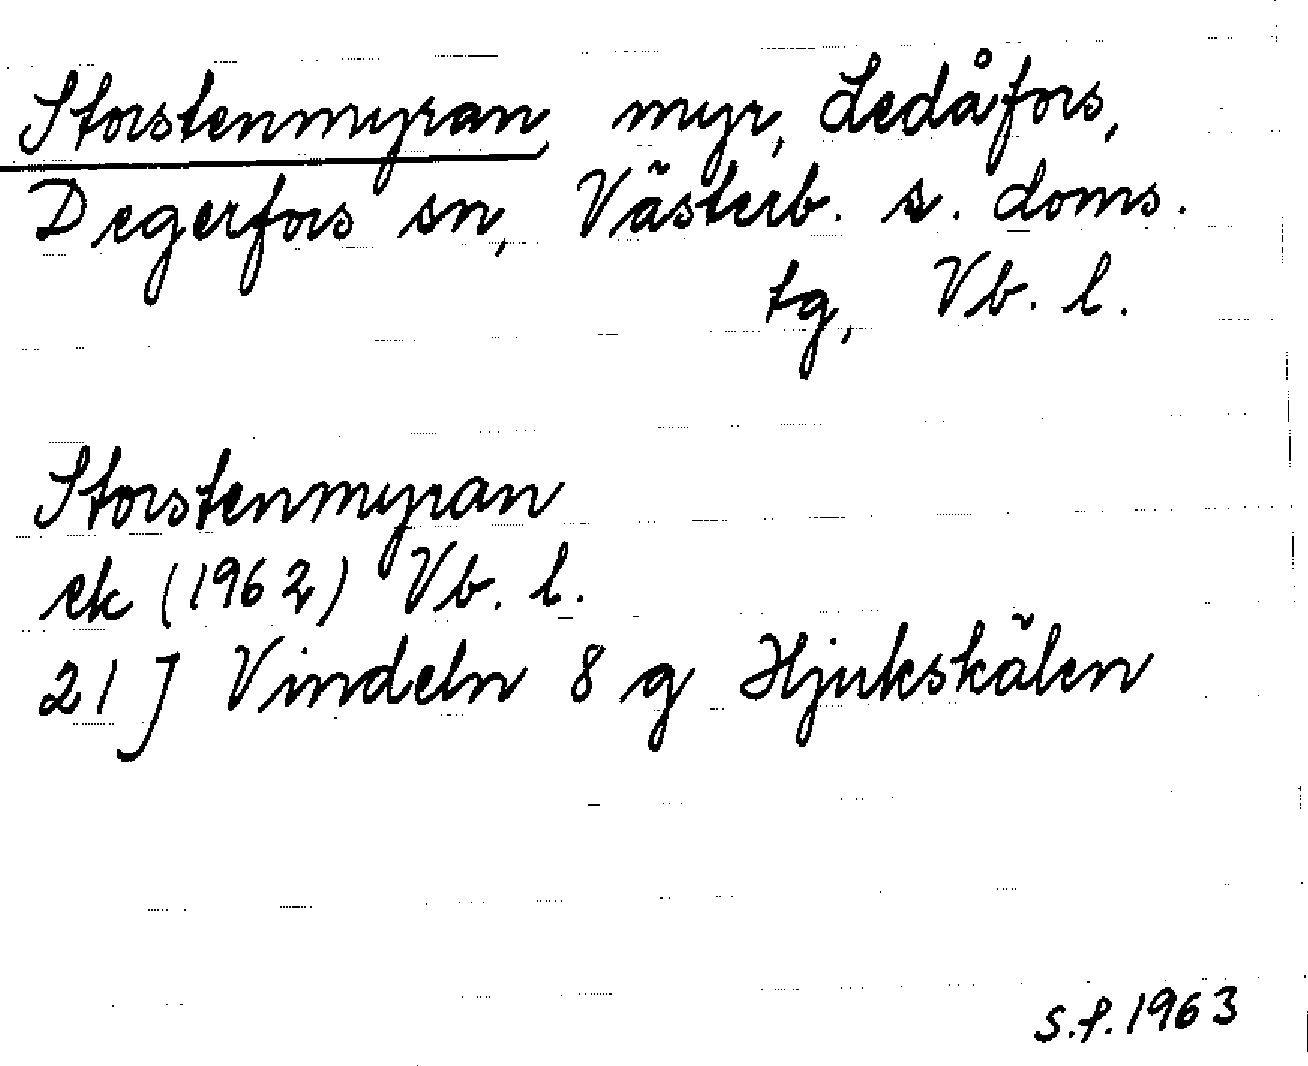 Storstenmyran, myr, Ledåfors,
Degerfors sn, Västerb. s. doms.
tg, Vb. l.
Storstenmyran
ek (1962) Vb. l.
21 J Vindeln 8 g Hjukskälen
S.f. 1963